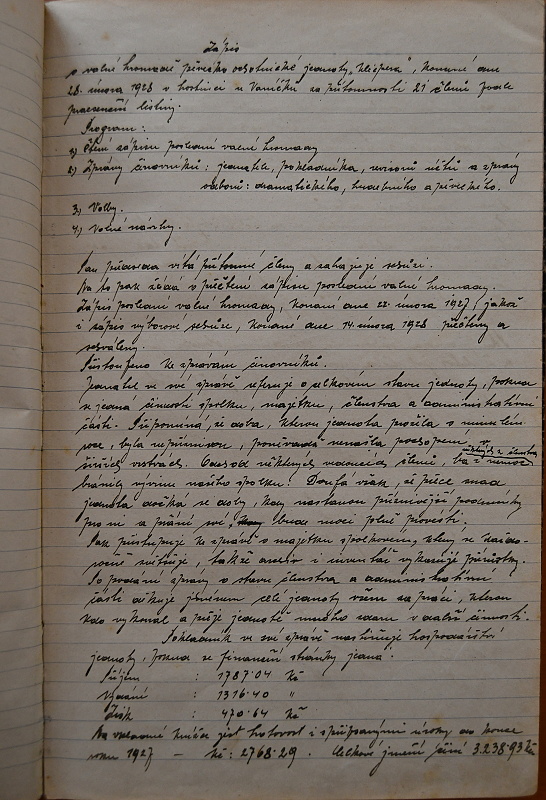 Zápis
o valné hromadě pěvecko ochotnické jednoty „Klicpera“, konané dne
28. února 1928 v hostinci u Vaníčků za přítomnosti 21 členů podle
presenční listiny.
Program:
1.) Čtení zápisu poslední valné hromady
2.) Zprávy činovníků: jednatele, pokladníka, revisorů účtů a zprávy
odborů: dramatického, hudebního a pěveckého.
3.) Volby.
4.) Volné návrhy.
Pan předseda vítá přítomné členy a zahajuje schůzi.
Na to pak žádá o přečtení zápisu poslední valné hromady.
Zápis poslední valné hromady, konané dne 22. února 1927, jakož
i zápis výborové schůze, konané dne 14. února 1928 přečteny a
schváleny.
Přistoupeno ke zprávám činovníků.
Jednatel ve své zprávě referuje o celkovém stavu jednoty, pokud
se jedná činnosti spolku, majetku, členstva a administrativní
části. Připomíná, že doba, kterou jednota prožila v minulém
roce, byla nepříznivou, poněvadž nenašla pochopení v
širších vrstvách. Odchod některých vedoucích členů, ba i nemoc
některých z členstva
bránily vývinu našeho spolku. Doufá však, že přece snad
jednota dočká se doby, kdy nastanou příznivější podmínky
pro ni a přání své bude moci plně provésti.
Pak přistupuje ke zprávě o majetku spolkovém, který se každo-
ročně zvětšuje, takže archiv i inventář vykazuje přírůstky.
Po podání zprávy o stavu členstva a administrativní
části děkuje jménem celé jednoty všem za práci, kterou
kdo vykonal a přeje jednotě mnoho zdaru v další činnosti.
Pokladník ve své zprávě nastiňuje hospodářství
jednoty, pokud se finanční stránky jedná.
Příjem : 1787·04 Kč
Vydání : 1316·40 "
Zisk : 470·64 Kč
Na vkladní knížce jest hotovost i s připsanými úroky do konce
roku 1927 — Kč: 2768·29. Celkové jmění činí 3.238·93 Kč